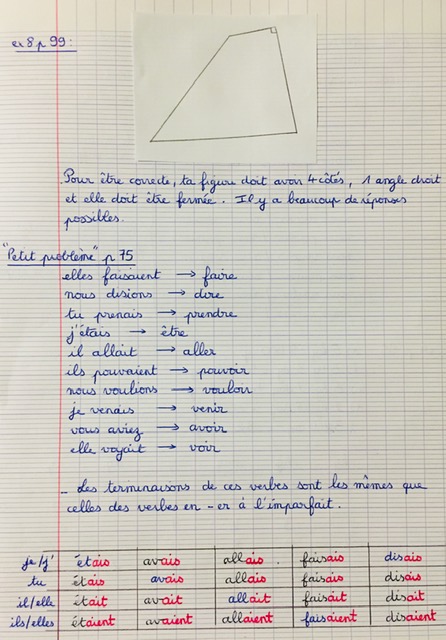 ex 8 p 99 :
Pour être correcte, ta figure doit avoir 4 côtés, 1 angle droit
et elle doit être fermée. Il y a beaucoup de réponses
possibles.
"Petit problème" p 75
elles faisaient → faire
nous disions → dire
tu prenais → prendre
j'étais → être
il allait → aller
ils pouvaient → pouvoir
nous voulions → vouloir
je venais → venir
vous aviez → avoir
elle voyait → voir
- Les terminaisons de ces verbes sont les mêmes que
celles des verbes en -er à l'imparfait.
je/j' étais avais allais faisais disais
tu étais avais allais faisais disais
il/elle était avait allait faisait disait
ils/elles étaient avaient allaient faisaient disaient